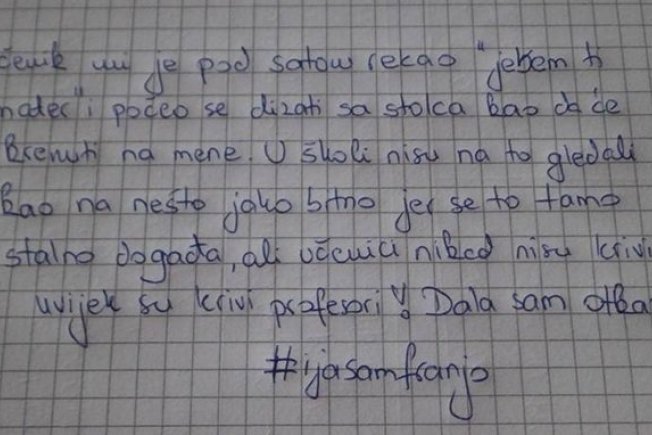 čenik mi je pod satom rekao "jebem ti
mater" i počeo se dizati sa stolca kao da će
krenuti na mene. U školi nisu na to gledali
kao na nešto jako bitno jer se to tamo
stalno događa, ali učenici nikad nisu krivi
uvijek su krivi profesori! Dala sam otka
#ijasamfranjo